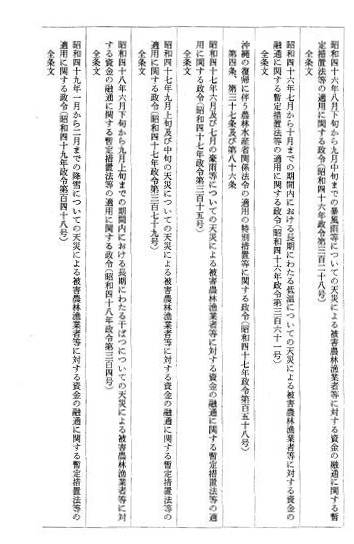 昭和四十六年八月下旬から九月中旬までの暴風雨等についての天災による被害農林漁業者等に対する資金の融通に関する暫
定措置法等の適用に関する政令(昭和四十六年政令第三百二十八号)
全条文
昭和四十六年七月から十月までの期間内における長期にわたる低温についての天災による被害農林漁業者等に対する資金の
融通に関する暫定措置法等の適用に関する政令(昭和四十六年政令第三百六十一号)
全条文
沖縄の復帰に伴う農林水産省関係法令の適用の特別措置等に関する政令(昭和四十七年政令第百五十八号)
第四条、第三十七条及び第八十六条
昭和四十七年六月及び七月の豪雨等についての天災による被害農林漁業者等に対する資金の融通に関する暫定措置法等の適
用に関する政令(昭和四十七年政令第三百十五号)
全条文
昭和四十七年九月上旬及び中旬の天災についての天災による被害農林漁業者等に対する資金の融通に関する暫定措置法等の
適用に関する政令(昭和四十七年政令第三百七十九号)
全条文
昭和四十八年六月下旬から九月上旬までの期間内における長期にわたる干ばつについての天災による被害農林漁業者等に対
する資金の融通に関する暫定措置法等の適用に関する政令(昭和四十八年政令第三百四号)
全条文
昭和四十九年一月から二月までの降雪についての天災による被害農林漁業者等に対する資金の融通に関する暫定措置法等の
適用に関する政令(昭和四十九年政令第百四十八号)
全条文